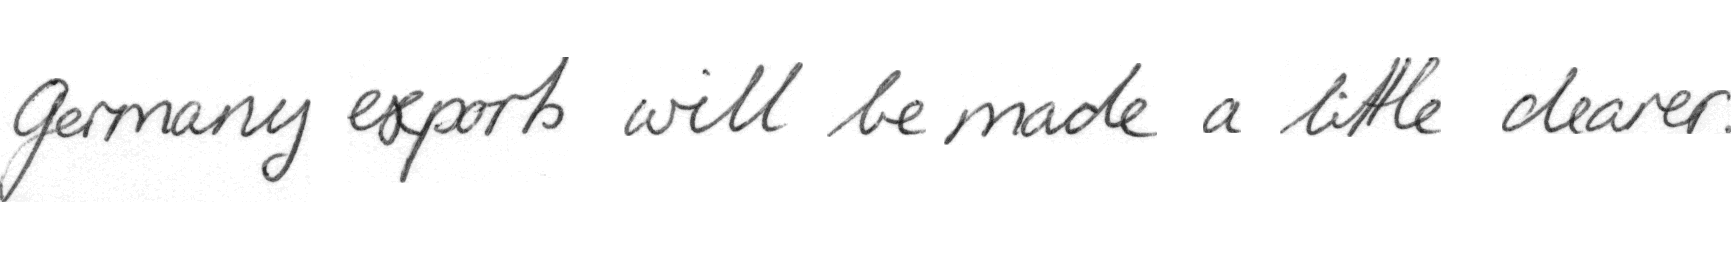 Germany exports will be made a little dearer.